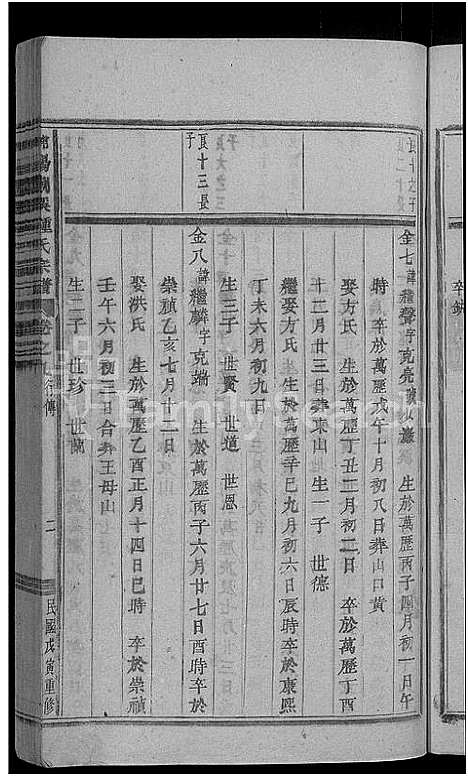 金七諱繼聲字克亮號 生於萬歷丙子四月初一日午
時 卒於萬歷戊午十月初八日葬山口黃
娶方氏 生於萬歷丁丑二月初二日 卒於萬歷丁酉
十二月廿三日葬東山 生一子 世德
繼娶方氏 生於萬歷辛巳九月初六日辰時 卒於康熙
丁未六月初九日
生三子 世賢 世道 世恩
良十三長
子
金八諱繼麟字克端 生於萬歷丙子六月廿七日酉時卒於
崇禎乙亥七月廿三日
娶洪氏 生於萬歷乙酉正月十四日巳時 卒於崇禎
壬午六月初三日合葬王母山
生二子 世珍 世蘭
鍾氏宗譜 卷之 行傳 二 民國戊寅重修